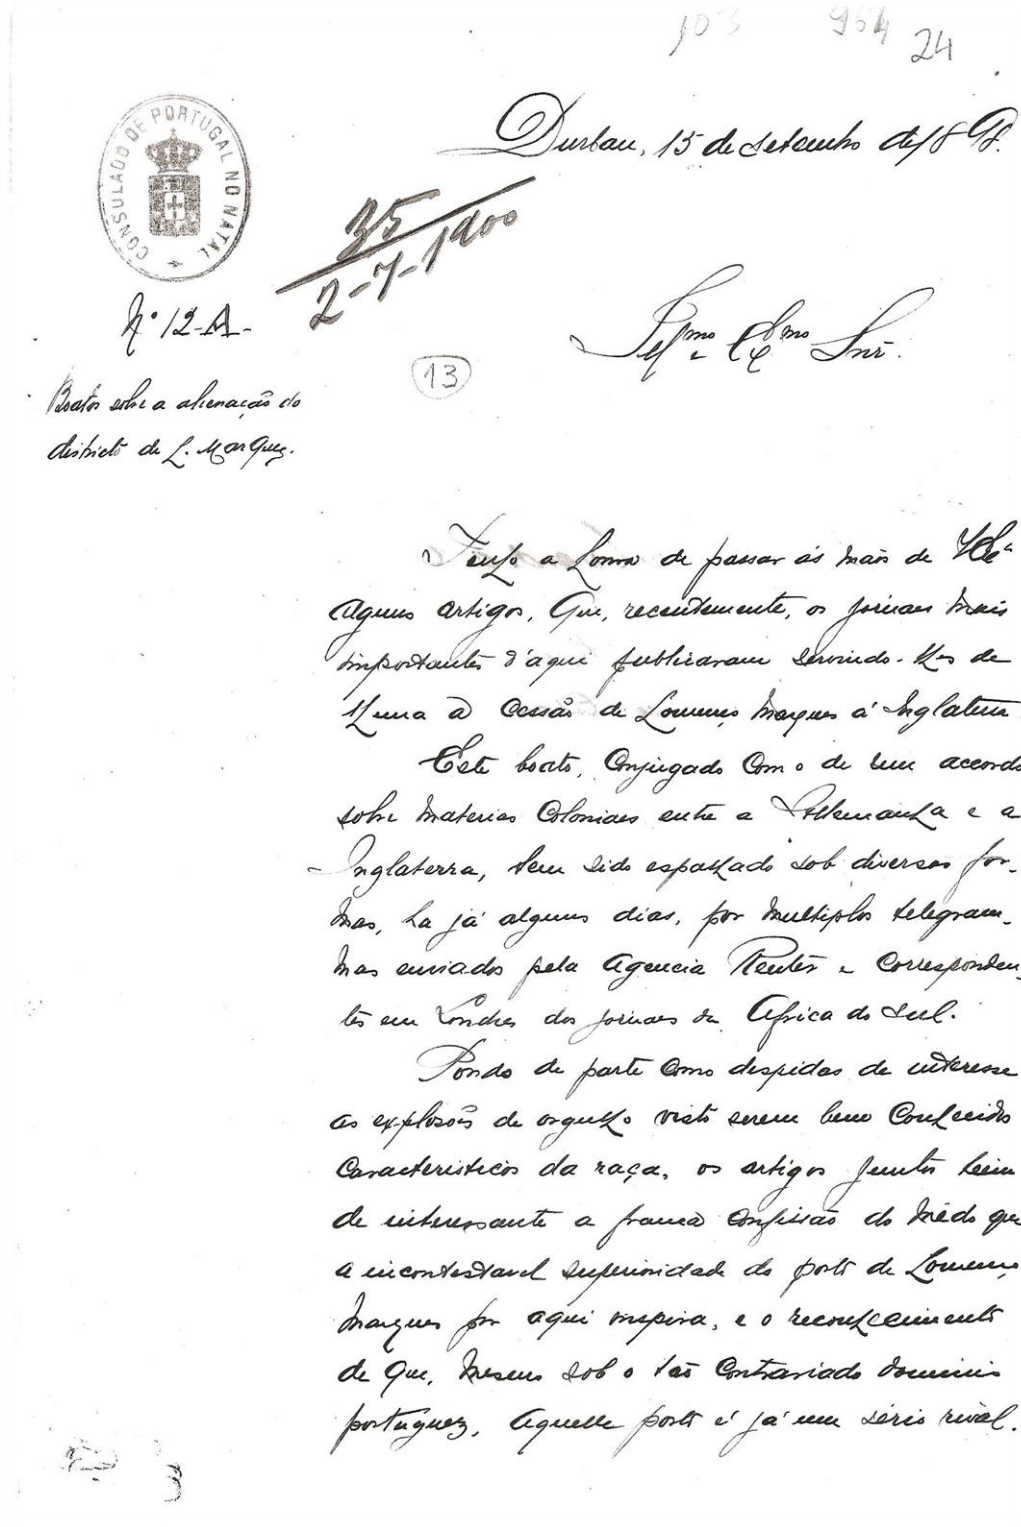 103 964 24
CONSULADO DE PORTUGAL NO NATAL
Durban, 15 de Setembro de 1898.
35
2-7-1900
Nº 12-A-
13
Illmo e Exmo Snr.
Boatos sobre a alienação do
districto de L. Marques.
Tenho a honra de passar ás mãos de VExª
alguns artigos, que, recentemente, os jornaes mais
importantes d'aqui publicaram servindo-lhes de
thema a cessão de Lourenço Marques á Inglaterra
Este boato, conjugado com o de um accordo
sobre materias coloniaes entre a Allemanha e a
Inglaterra, tem sido espalhado sob diversas for-
mas, ha já alguns dias, por multiplos telegram-
mas enviados pela Agencia Reuter e corresponden-
tes em Londres dos jornaes da Africa do Sul.
Pondo de parte como despidas de interesse
as explosões de orgulho visto serem bem conhecidos
caracteristicos da raça, os artigos juntos teem
de interessante a franca confissão do mêdo que
a incontestavel superioridade do porto de Lourenço
Marques por aqui inspira, e o reconhecimento
de que, mesmo sob o tão contrariado dominio
portuguez, aquelle porto é já um sério rival.